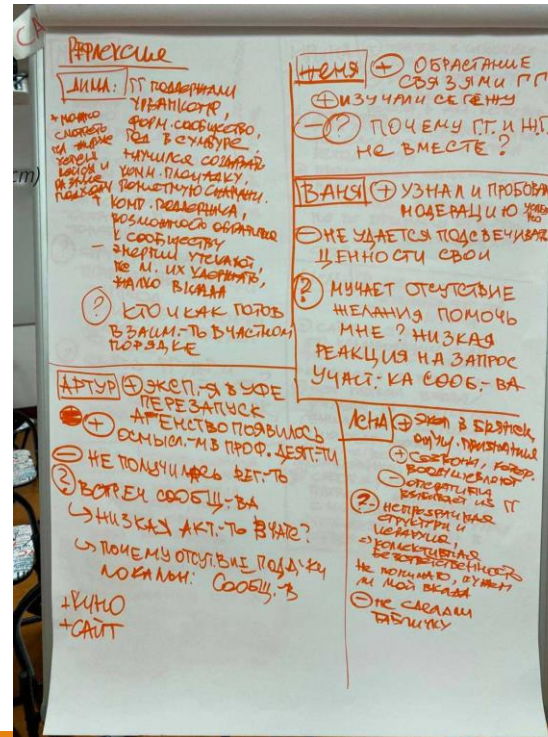 СА
Рефлексия
ДИМА: ГГ ПОДДЕРЖАЛИ
ФОРМ. СООБЩЕСТВО,
НАУЧИЛСЯ СОЗДАВАТЬ
КОМН. ПЛОЩАДКУ
+ МОЖНО
СМОТРЕТЬ
РАЗНЫЕ
ПОДХОДЫ
ВОЗМОЖНОСТЬ
К СООБЩЕСТВУ
− ЭНЕРГИИ УТЕКАЮТ,
НЕ М. ИХ УДЕРЖАТЬ,
ЖАЛКО ВКЛАДА
? КТО И КАК ГОТОВ
ВЗАИМ.-ТЬ В ЧАСТНОМ
ПОРЯДКЕ
ЖЕНЯ + ОБРАСТАНИЕ
СВЯЗЯМИ ГГ
+ ИЗУЧАЛИ СЕГЕЖУ
− ? ПОЧЕМУ Г.Г. И Ж.Г.
НЕ ВМЕСТЕ?
ВАНЯ + УЗНАЛ И ПРОБОВАЛ
МОДЕРАЦИЮ
− НЕ УДАЕТСЯ ПОДСВЕЧИВАТЬ
ЦЕННОСТИ СВОИ
? МУЧАЕТ ОТСУТСТВИЕ
ЖЕЛАНИЯ ПОМОЧЬ
МНЕ? НИЗКАЯ
РЕАКЦИЯ НА ЗАПРОС
УЧАСТ.-КА СООБ.-ВА
АРТУР + ЭКСП.-Я В УФЕ
ПЕРЕЗАПУСК
+ АГЕНСТВО ПОЯВИЛОСЬ
ОСМЫСЛ.-М В ПРОФ. ДЕЯТ-ТИ
− НЕ ПОЛУЧИЛАСЬ РЕГ.-ТЬ
? ВСТРЕЧ СООБЩ.-ВА
↳ НИЗКАЯ АКТ.-ТЬ В ЧАТЕ?
↳ ПОЧЕМУ ОТСУТ.ВИЕ ПОДД-КИ
ЛОКАЛЬН. СООБЩ.-В
+ КИНО
+ САЙТ
ЛЕНА + ЭКСП В БРЯНСК,
+ СВОБОДА, КОТОР.
ВООДУШЕВЛЯЮТ
− ОПЕРАТИВКА
ВЫБИВАЕТ ИЗ ГГ
? НЕПРОЗРАЧНАЯ
СТРУКТУРА И
ИЕРАРХИЯ,
КОЛЛЕКТИВНАЯ
БЕЗОТВЕТСТВЕННОСТЬ
НЕ ПОНИМАЮ, НУЖЕН
ЛИ МОЙ ВКЛАД
− НЕ СДЕЛАЛИ
ТАБЛИЧКУ